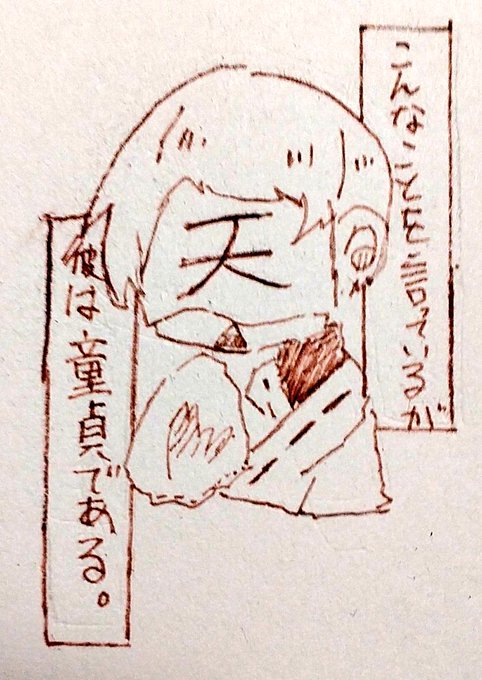 こんなことを言っているが
天
彼は童貞である。